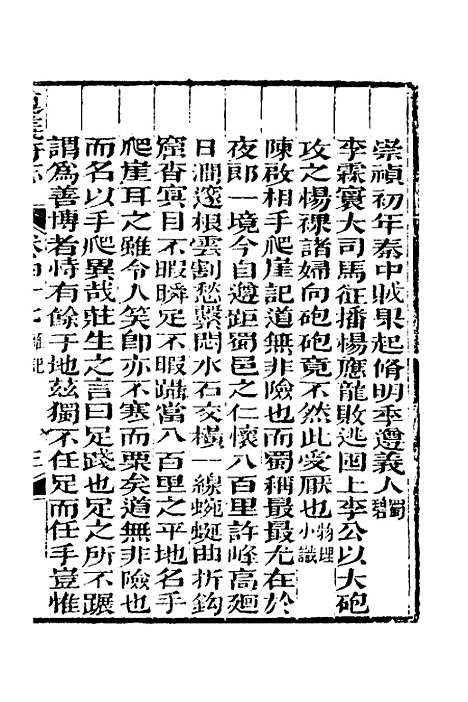 崇禎初年秦中賊果起脩明季遵義人蜀碧
李霖寰大司馬征播楊應龍敗逃囤上李公以大砲
攻之楊裸諸婦向砲砲竟不然此受厭也物理小識
陳啟相手爬崖記道無非險也而蜀稱最最尤在於
夜郎一境今自遵距蜀邑之仁懷八百里許峰高廻
日澗邃根雲割愁繫悶水石交橫一線蜿蜒曲折鈎
窟杳冥目不暇瞬足不暇躡當八百里之平地名手
爬崖耳之雖令人笑卽亦不寒而栗矣道無非險也
而名以手爬異哉莊生之言曰足踐也足之所不蹍
謂為善博者恃有餘于地玆獨不任足而任手豈惟
遵義府志 卷四十七 雜記